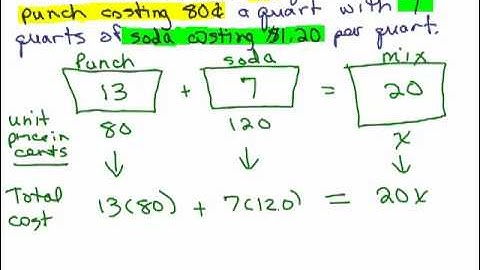 punch costing 80¢ a quart with 7
quarts of soda costing $1.20 per quart.
Punch soda mix
13 + 7 = 20
unit
price in
cents
80 120 x
Total
cost
13(80) + 7(120) = 20x